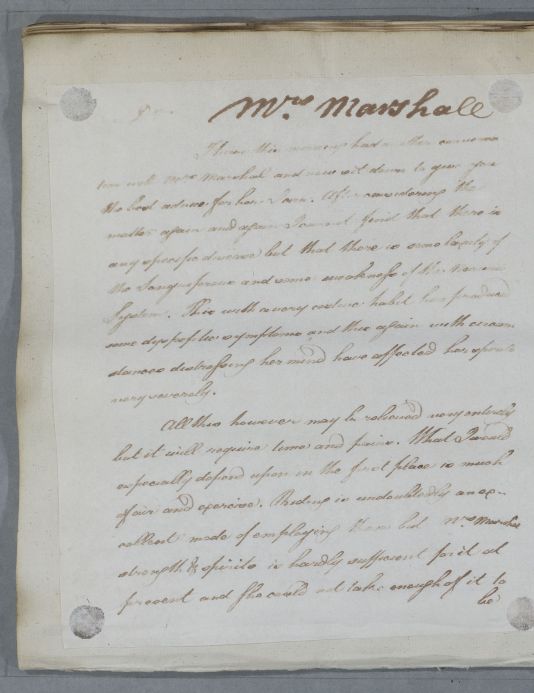 Mrs. Marshall
I have this morning had another conversa
tion with Mrs Marshal and now sit down to give you
the best advice for her I can. After considering the
matter again and again I cannot find that there is
any specific disease but that there is some laxity of
the Sanguiferous and some weakness of the nervous
System. This with a very costive habit has produced
some dyspeptic symptoms and this again with circum
stances distressing her mind have affected her spirits
very severely.
All this however may be relieved very entirely
but it will require time and pains. What I would
especially depend upon in the first place is much
of air and exercise. Riding is undoubtedly an ex-
cellent mode of employing them but Mrs Marshal
strength & spirits is hardly sufficient for it at
present and she could not take enough of it to
be